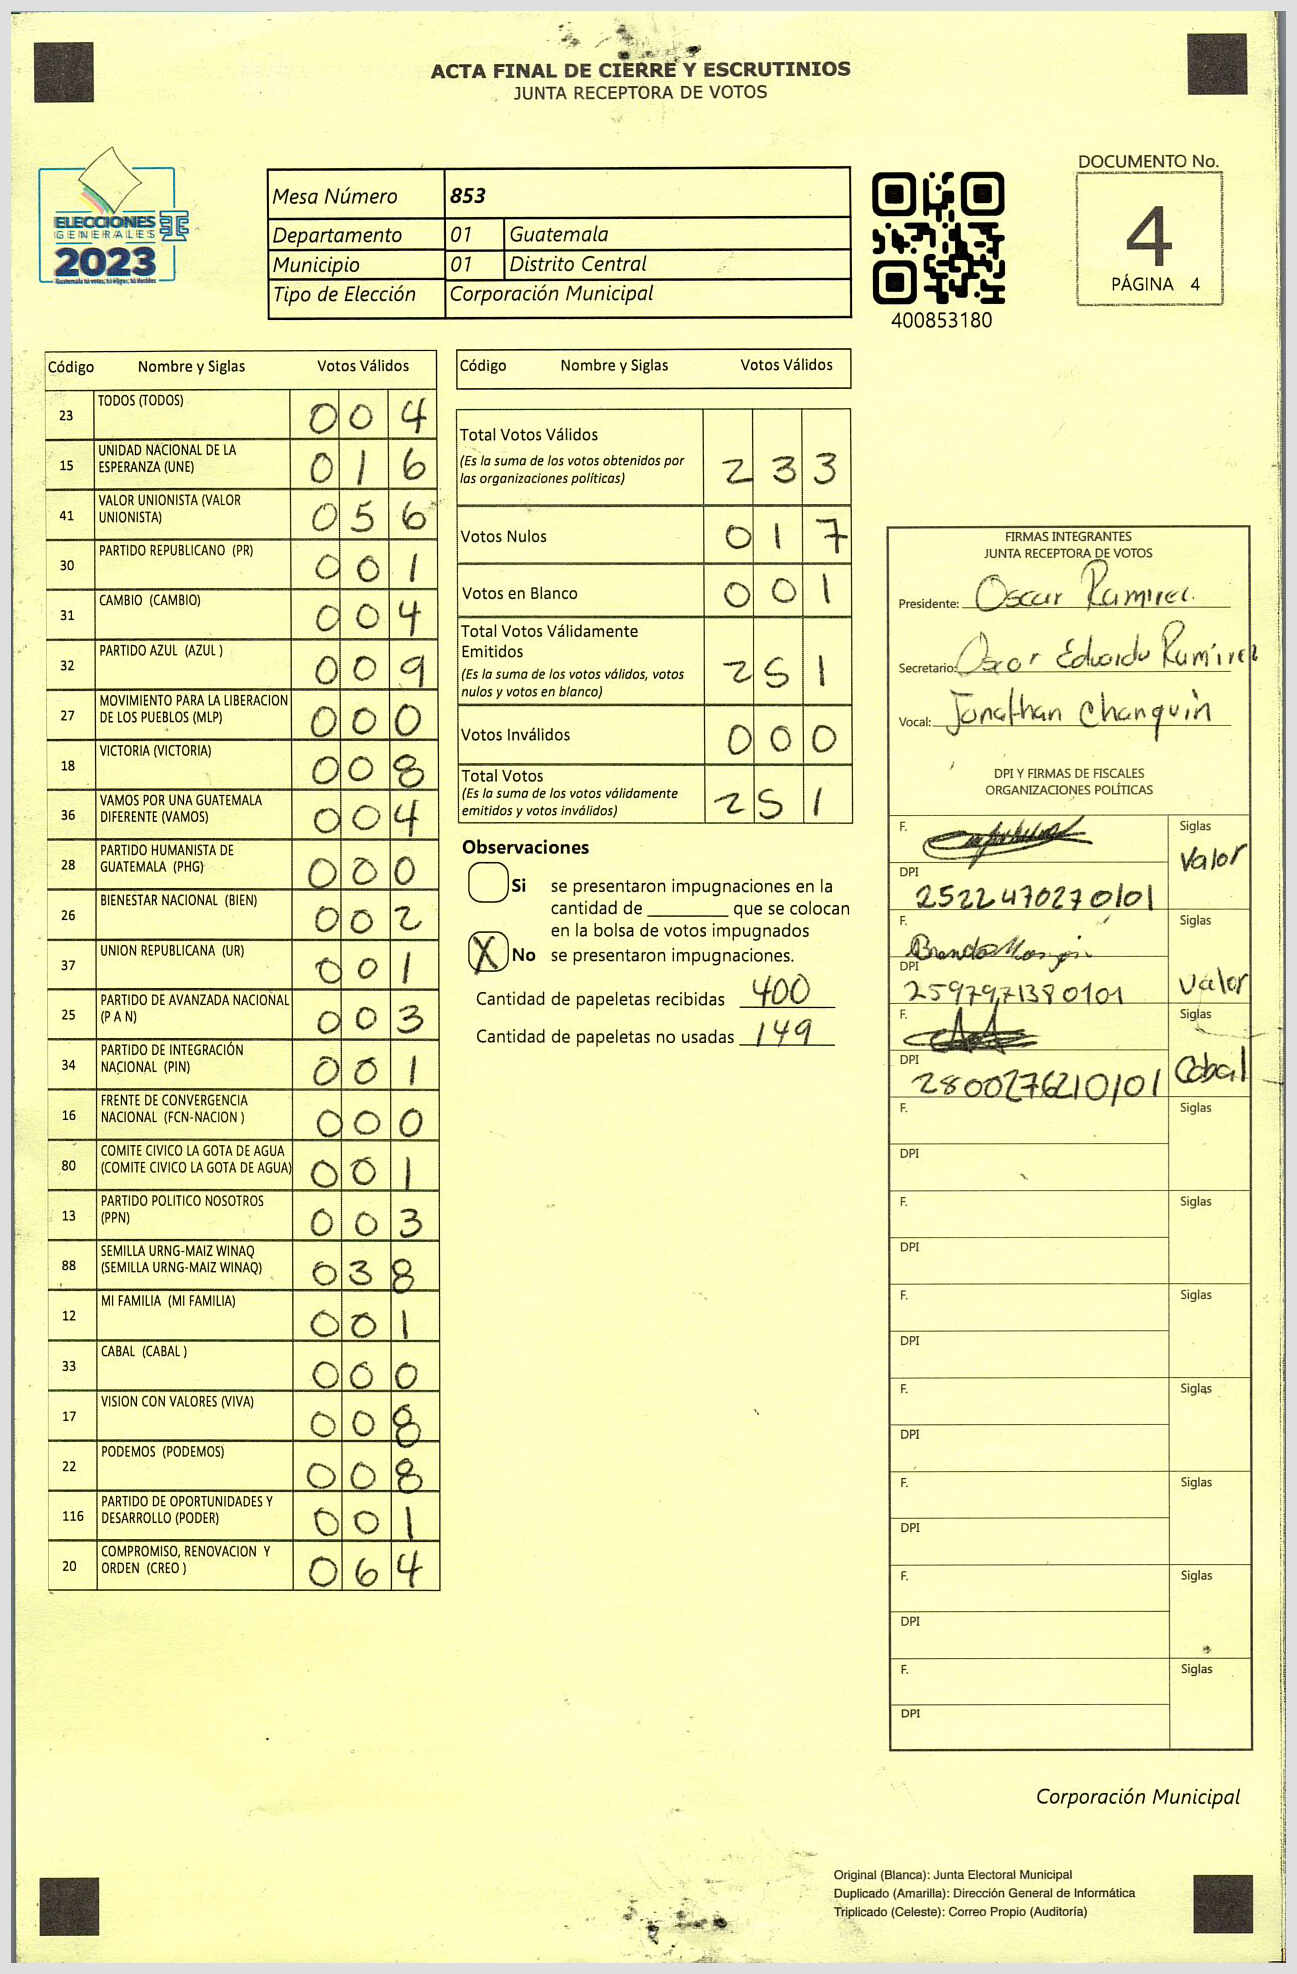 ACTA FINAL DE CIERRE Y ESCRUTINIOS
JUNTA RECEPTORA DE VOTOS
ELECCIONES
GENERALES
2023
Mesa Número 853
Departamento 01 Guatemala
Municipio 01 Distrito Central
Tipo de Elección Corporación Municipal
400853180
DOCUMENTO No.
4
PÁGINA 4
Código Nombre y Siglas Votos Válidos
23 TODOS (TODOS) 0 0 4
15 UNIDAD NACIONAL DE LA
ESPERANZA (UNE) 0 1 6
41 VALOR UNIONISTA (VALOR
UNIONISTA) 0 5 6
30 PARTIDO REPUBLICANO (PR) 0 0 1
31 CAMBIO (CAMBIO) 0 0 4
32 PARTIDO AZUL (AZUL ) 0 0 9
27 MOVIMIENTO PARA LA LIBERACION
DE LOS PUEBLOS (MLP) 0 0 0
18 VICTORIA (VICTORIA) 0 0 8
36 VAMOS POR UNA GUATEMALA
DIFERENTE (VAMOS) 0 0 4
28 PARTIDO HUMANISTA DE
GUATEMALA (PHG) 0 0 0
26 BIENESTAR NACIONAL (BIEN) 0 0 2
37 UNION REPUBLICANA (UR) 0 0 1
25 PARTIDO DE AVANZADA NACIONAL
(P A N) 0 0 3
34 PARTIDO DE INTEGRACIÓN
NACIONAL (PIN) 0 0 1
16 FRENTE DE CONVERGENCIA
NACIONAL (FCN-NACION ) 0 0 0
80 COMITE CIVICO LA GOTA DE AGUA
(COMITE CIVICO LA GOTA DE AGUA) 0 0 1
13 PARTIDO POLITICO NOSOTROS
(PPN) 0 0 3
88 SEMILLA URNG-MAIZ WINAQ
(SEMILLA URNG-MAIZ WINAQ) 0 3 8
12 MI FAMILIA (MI FAMILIA) 0 0 1
33 CABAL (CABAL ) 0 0 0
17 VISION CON VALORES (VIVA) 0 0 8
22 PODEMOS (PODEMOS) 0 0 8
116 PARTIDO DE OPORTUNIDADES Y
DESARROLLO (PODER) 0 0 1
20 COMPROMISO, RENOVACION Y
ORDEN (CREO ) 0 6 4
Código Nombre y Siglas Votos Válidos
Total Votos Válidos
(Es la suma de los votos obtenidos por
las organizaciones políticas) 2 3 3
Votos Nulos 0 1 7
Votos en Blanco 0 0 1
Total Votos Válidamente
Emitidos
(Es la suma de los votos válidos, votos
nulos y votos en blanco) 2 5 1
Votos Inválidos 0 0 0
Total Votos
(Es la suma de los votos válidamente
emitidos y votos inválidos) 2 5 1
Observaciones
Si se presentaron impugnaciones en la
cantidad de ________ que se colocan
en la bolsa de votos impugnados
X No se presentaron impugnaciones.
Cantidad de papeletas recibidas 400
Cantidad de papeletas no usadas 149
FIRMAS INTEGRANTES
JUNTA RECEPTORA DE VOTOS
Presidente: Oscar Ramirez
Secretario: Oscar Eduardo Ramirez
Vocal: Jonathan Changuin
DPI Y FIRMAS DE FISCALES
ORGANIZACIONES POLÍTICAS
F. Siglas
Valor
DPI
2522470270101
F. Siglas
DPI
2597971380101 Valor
F. Siglas
DPI
2800276210101 Cabal
F. Siglas
DPI
F. Siglas
DPI
F. Siglas
DPI
F. Siglas
DPI
F. Siglas
DPI
F. Siglas
DPI
F. Siglas
DPI
Corporación Municipal
Original (Blanca): Junta Electoral Municipal
Duplicado (Amarilla): Dirección General de Informática
Triplicado (Celeste): Correo Propio (Auditoría)